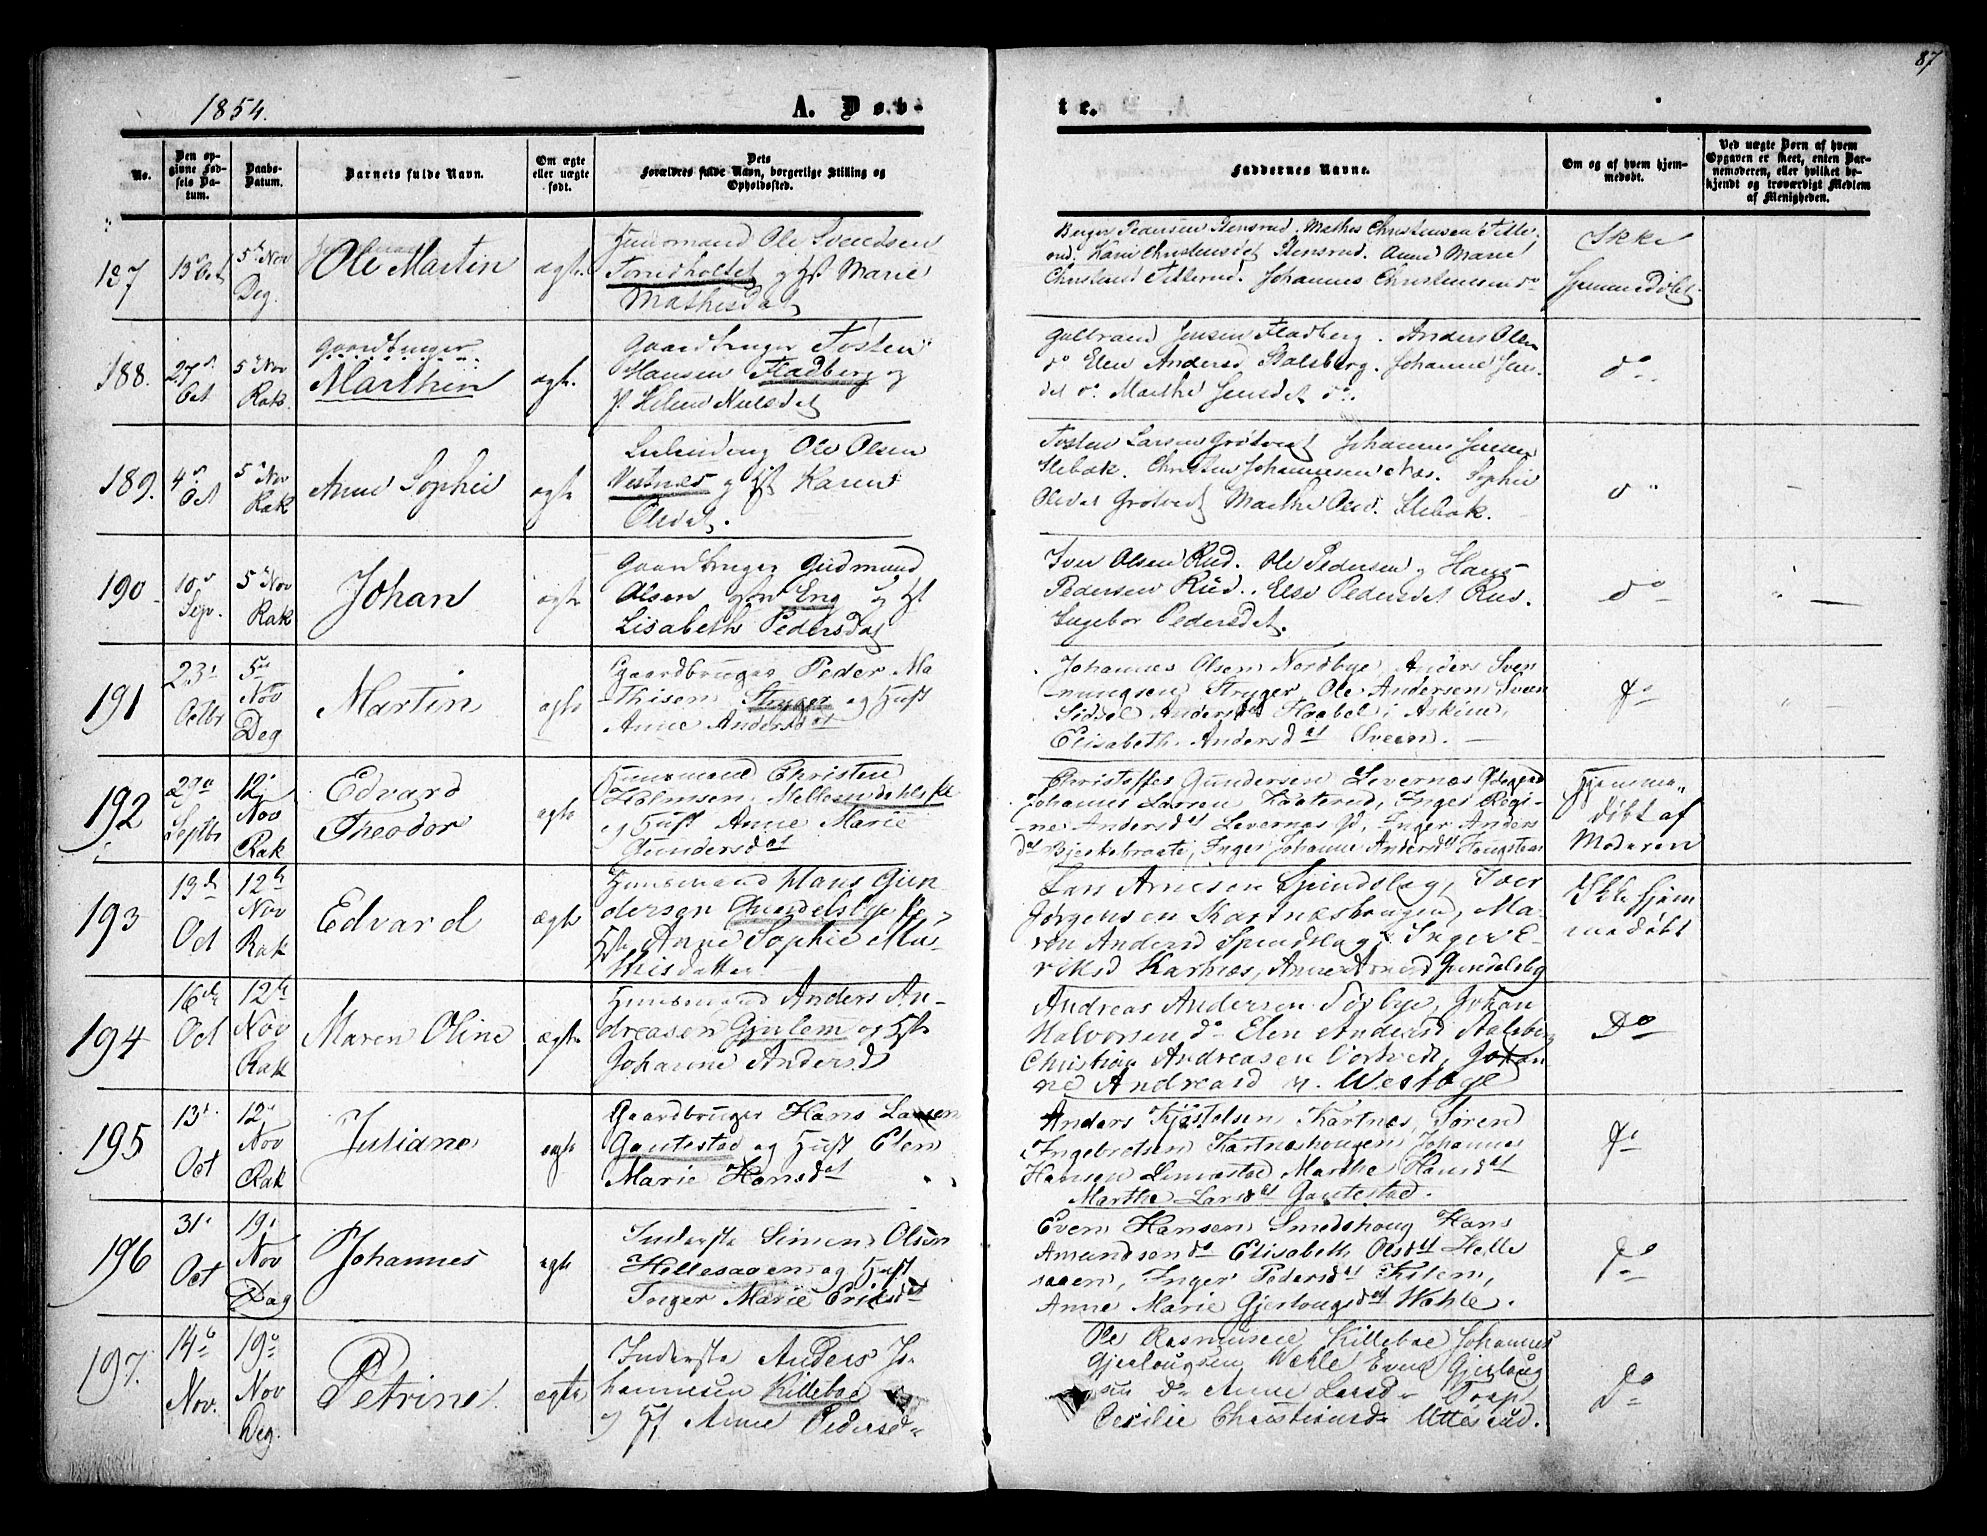 87
1854.
A. Døb-
te.
No.
Den op-
givne Fød-
sels Da-
tum.
Daabs-
Datum.
Barnets fulde Navn.
Om ægte
eller uægte
født.
Dets
Forældres fulde Navn, borgerlige Stilling og
Opholdssted.
Faddernes Navne.
Om og af hvem hjem-
medøbt.
Ved uægte Børn af hvem
Opgaven er skeet, enten Bar-
nemoderen, eller hvilket be-
kjendt og troværdigt Medlem
af Menigheden.
187
13 Oct
5 Nov
Deg.
Ole Martin
ægte
Huusmand Ole Svendsen
og Hst Marie
Mathisdat
Berger Pedersen Stensrud. Mathis Christensen Titte-
rud. Kari Christensdat Stensrud. Anne Marie
Christensd Titterud. Johannes Christensen do
Ikke
Hjemmedøbt.
188.
27
Oct
5 Nov
Rak.
Gaardbruger
Marthin
ægte
Gaardbruger Tosten
Hansen Fladberg og
H. Helene Nielsdat
Gulbrand Jensen Fladberg. Anders Olsen
do Elen Andersd Stalsberg. Johanne Jens-
dat do. Marthe Jensdat do.
do
189.
4
Oct
5 Nov
Rak
Anne Sophie
ægte
Leilending Ole Olsen
Vestnes og Hst Karen
Olsdat.
Tosten Larsen Grøtvedt Johannes Jensen
Slebak. Christen Johannesen Næs. Sophie
Olsdat Grøtvedt Marthe Olsd. Slebak.
do
190
10
Sep.
5 Nov
Rak
Johan
ægte
Gaardbruger Gudmund
Olsen Eng og Hst
Lisabeth Pedersdat
Iver Olsen Rud. Ole Pedersen, Hans
Pedersen Rud. Else Pedersdat Rud.
Ingebor Pedersdat.
do
191
23
Octbr
5
Nov
Deg
Martin
ægte
Gaardbruger Peder Ma-
thisen Stryger og Hust
Anne Andersdat
Johannes Olsen Nordbye, Anders Sven
nungsen Stryger, Ole Andersen Sveen
Sidsel Andersdat Haabel i Askim,
Elisabeth Andersdat Sveen.
do
192
29
Septbr
12
Nov
Rak
Edvard
Theodor
ægte
Huusmand Christen
Holmsen
og Hust Anne Marie
Gundersdat
Christoffer Gundersen Levernæs Ødegaard
Johannes Larsen Kaaterud, Inger Regi-
ne Andersdat Levernæs Ød, Inger Anders
dat Bjerkebraate, Inger Johanne Andersdat
Hjemme-
døbt af
Moderen
193
19
Oct
12
Nov
Rak
Edvard
ægte
Huusmand Hans Gun-
dersen Gundelsbye
Hst Anne Sophie Ma-
thisdatter
Lars Arnesen Spindslag, Iver
Jørgensen Kartnæshougen, Ma-
ren Andersd Spindslag, Inger E-
riksd Kartnæs, Anne Gundelsby
Ikke hjem
medøbt
194
16
Oct
12
Nov
Rak
Maren Oline
ægte
Huusmand Anders An-
dreasen Gjulem og Hst
Johanne Andersd
Andreas Andersen Torbye, Johan
Halvorsen do Elen Andersd Aalsberg
Christian Andreasen Tortvedt, Johan
ne Andreasd
Do
195
13
Oct
12
Nov
Rak
Juliane
ægte
Gaardbruger Hans Larsen
Gautestad og Hust Elen
Marie Hansdat
Anders Kjostelsen Kartnæs, Søren
Ingebretsen Kartneshougen, Johannes
Hansen Limestad Marthe Hansdat
Marthe Larsdat Gautestad.
do
196
31
Oct
19
Nov
Dag
Johannes
ægte
Inderste Simen Olsen
Hellesaaen og Hust
Inger Marie Eriksdat
Even Hansen Smedshoug Hans
Amundsen do Elisabeth Olsdat Helle
saaen, Inger Pedersdat
Anne Marie Gjerlougsdat Wahle.
do
197.
14
Nov.
19
Nov
Deg.
Petrine
ægte
Inderste Anders Jo-
hannesen Killebae
og Hst Anne Pedersd
Ole Rasmusen Killebae Johannes
Gjerlougsen Wahle Even Gjerloug
sen do Anne Larsd Trap
Cecilie Christiansd
Do